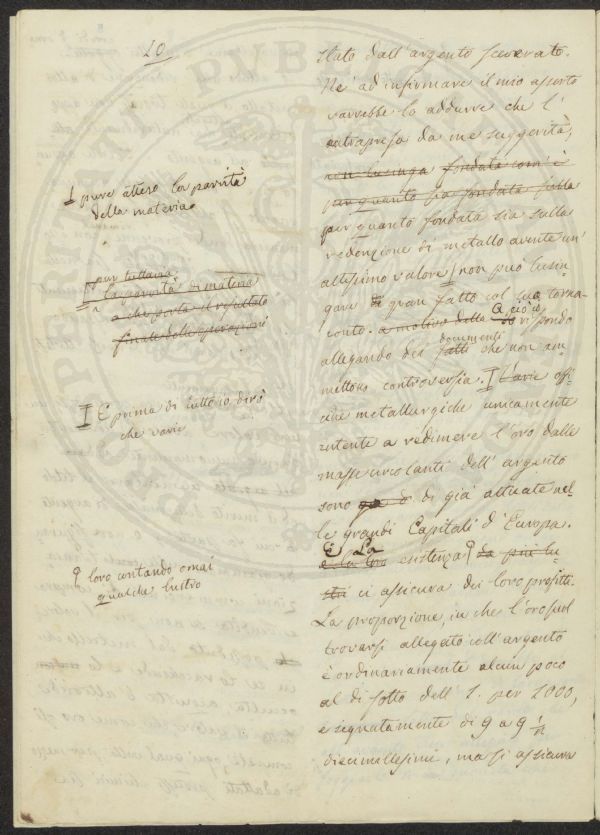 20
stato dall'argento sceverato.
Ne' ad infirmare il mio asserto
varrebbe lo addurre che l'
intrapresa da me suggerita,
non lusinga fondata com'è
per quanto sia fondata sulla
per quanto fondata sia sulla
redenzione di metallo avente un'
altissimo valore I non può lusin
gare di gran fatto col suo torna-
conto. a motivo della A ciò io rispondo
documenti
allegando dei fatti che non am
mettono controversia. I Varie offi
cine metallurgiche unicamente
intente a redimere l'oro dalle
masse circolanti dell'argento
sono già di già attuate nel
le grandi Capitali d'Europa.
E La
e la loro esistenza da più lu
stri ci assicura dei loro profitti.
La proporzione, in che l'oro suol
trovarsi allegato coll'argento
è ordinariamente alcun poco
al di sotto dell' 1. per 1000,
e segnatamente di 9 a 9 1/2
diecimillesimi, ma si assicura
I pure atteso la parvità
della materia
pur tuttavia
la parvità di materia
a che porta il risultato
finale delle operazioni
I E prima di tutto io dirò
che varie
loro contando omai
qualche lustro